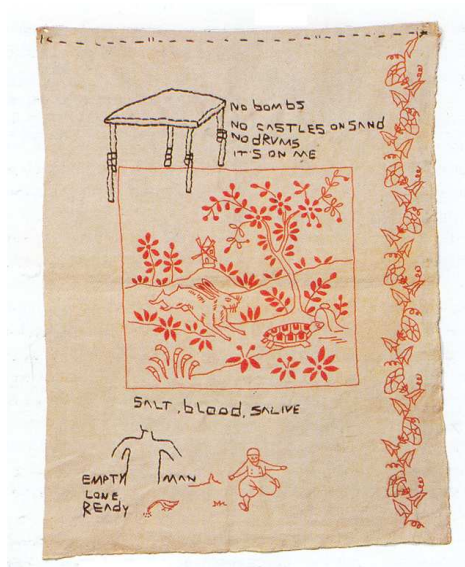 No bombs
NO CASTLES ON SAND
NO dRUMS
IT'S ON ME
SALT, blood, SALIVE
EMPTY MAN
LONE
REAdy